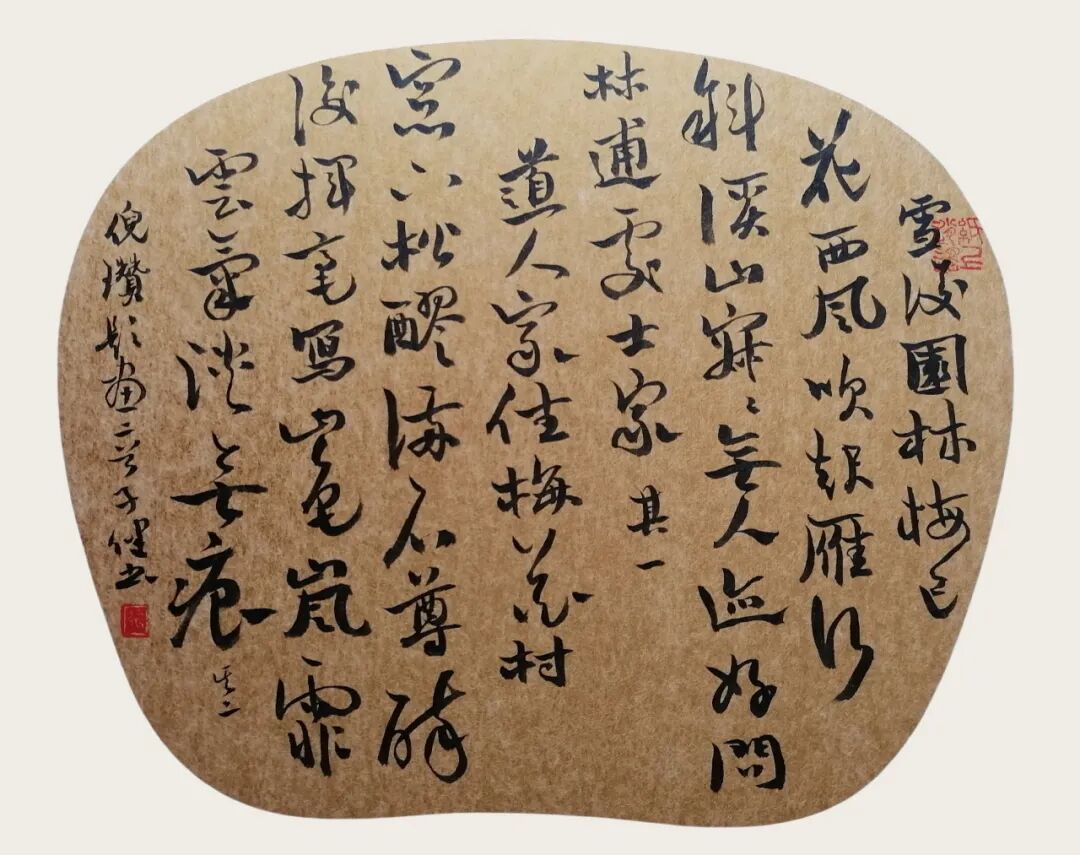 雪後園林梅已
花西風吹起雁行
斜溪山寂〻無人迹好問
林逋處士家 其一
道人家住梅花村
窓下松醪滿石尊醉
後揮毫寫山色嵐霏
雲氣淡無痕 其二
倪瓚題畫二首子健书